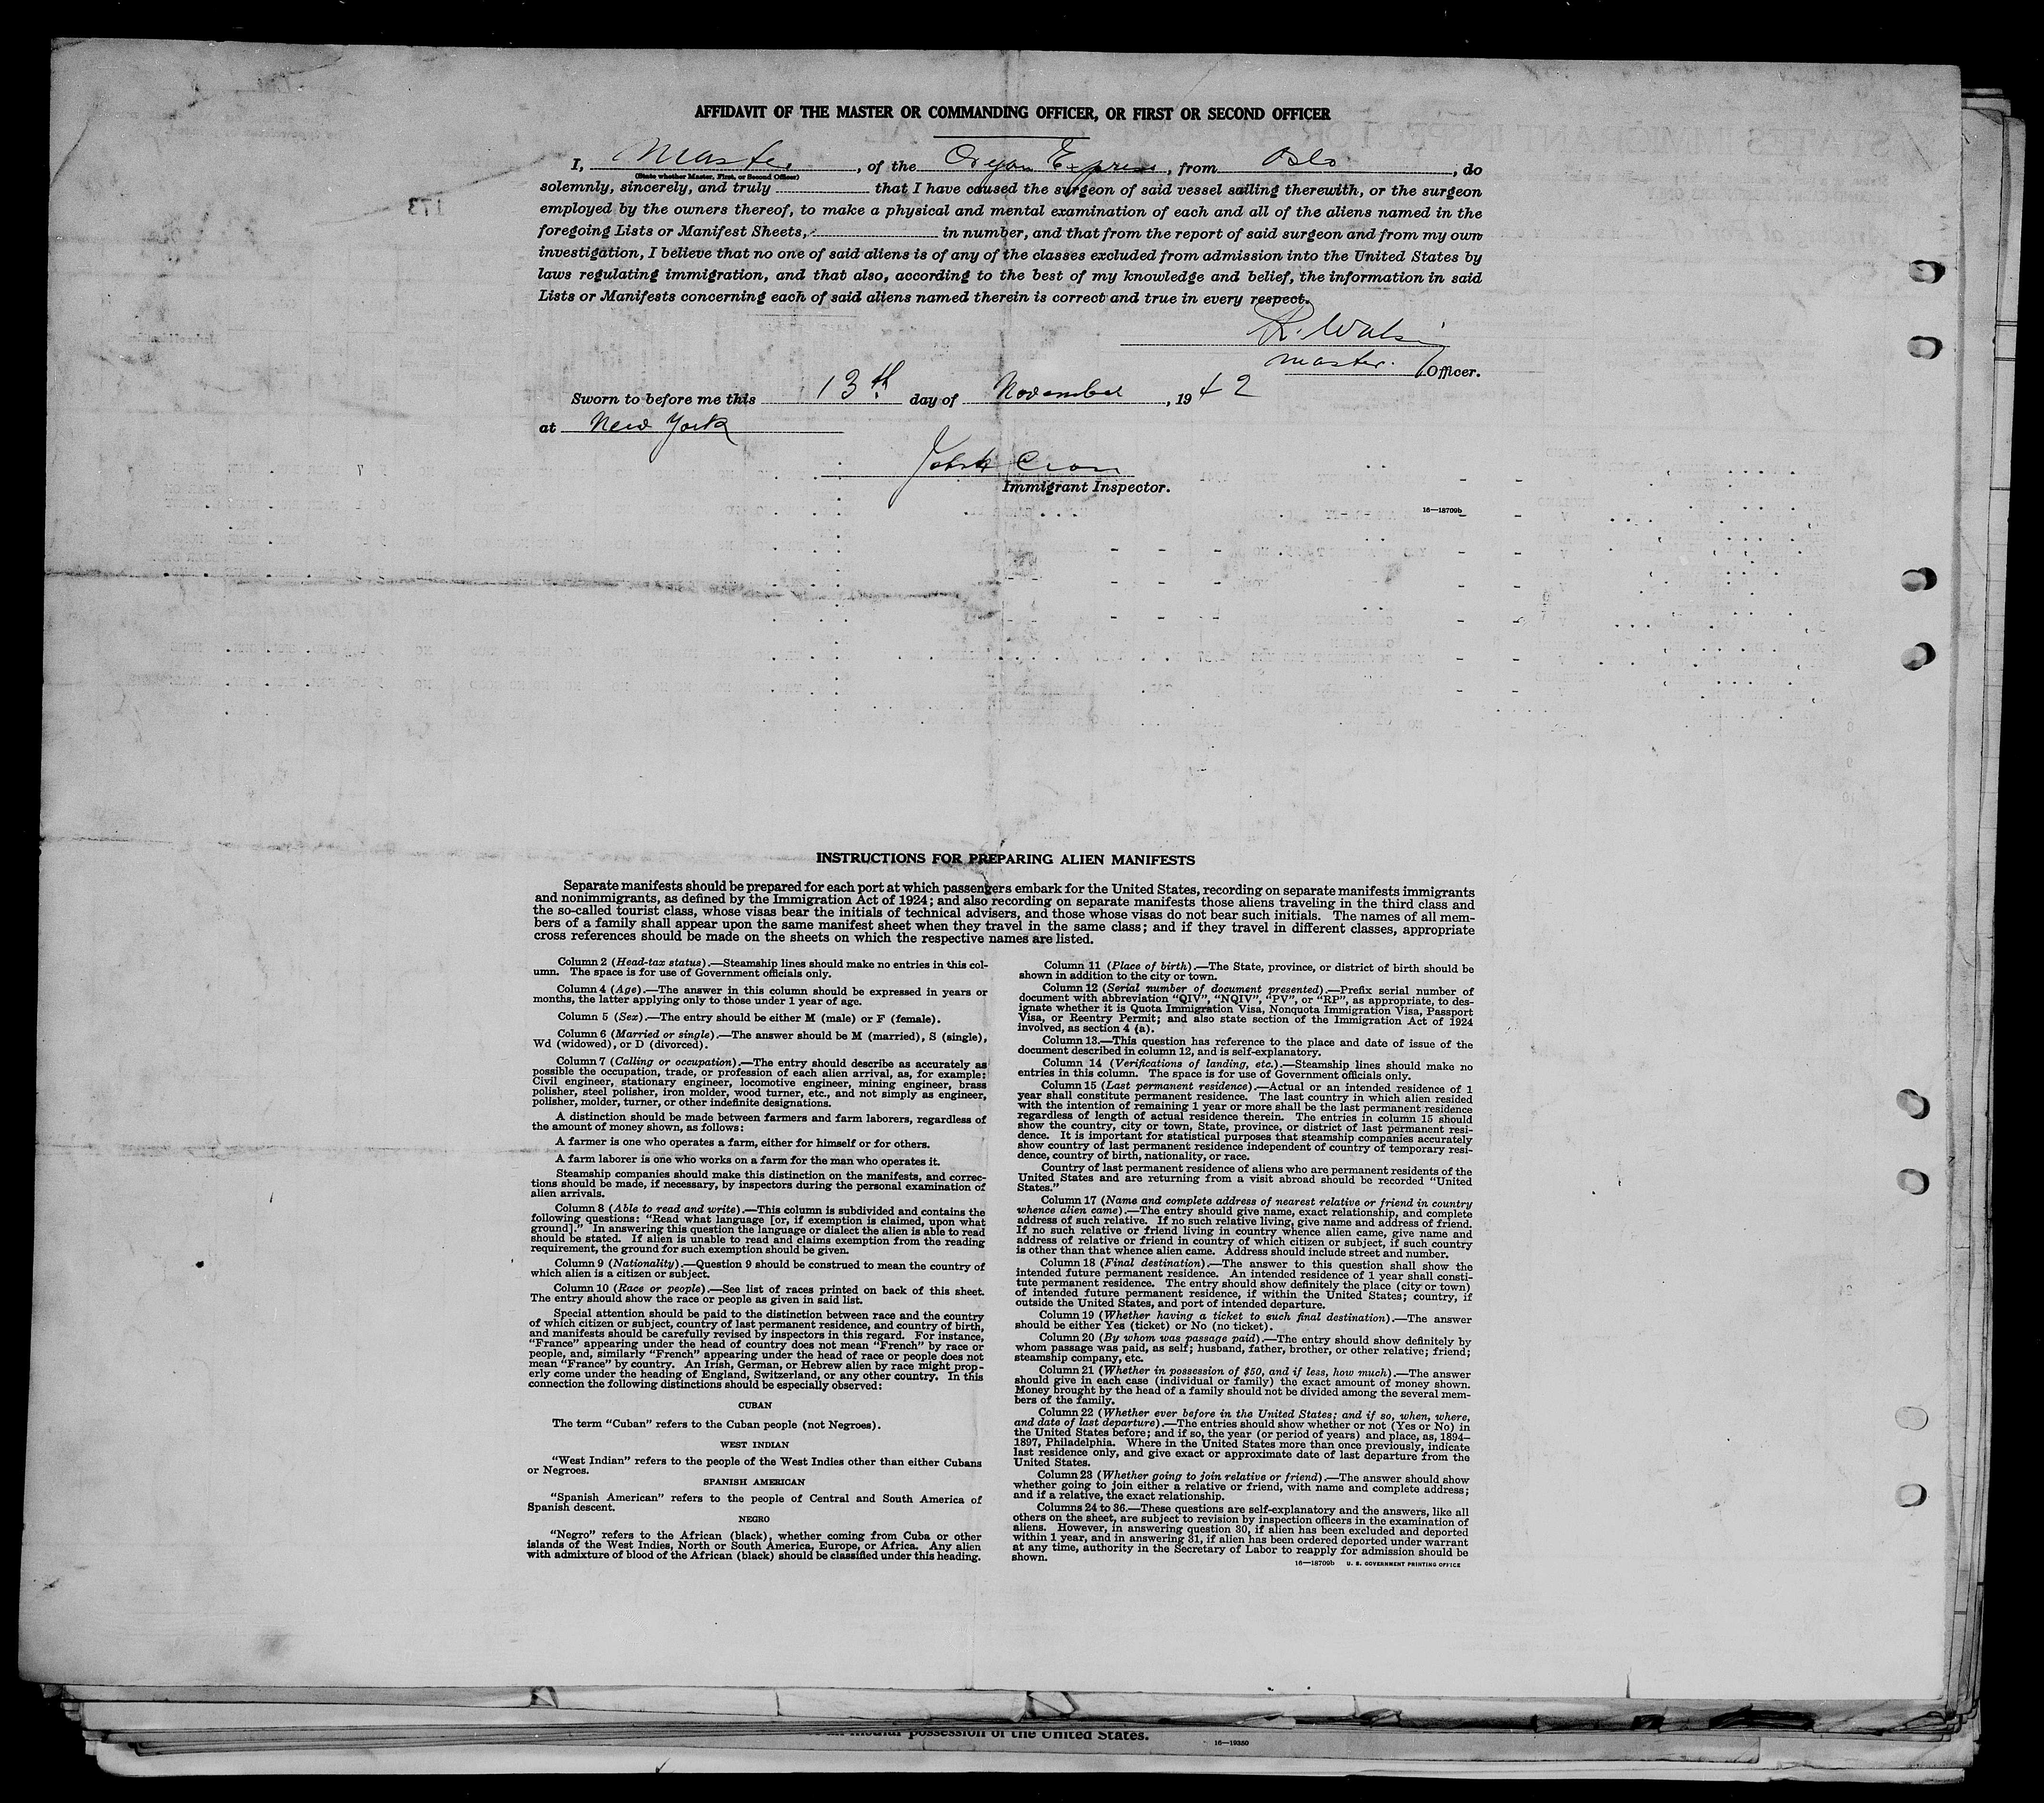 AFFIDAVIT OF THE MASTER OR COMMANDING OFFICER, OR FIRST OR SECOND OFFICER
I, Master, of the Oregon Express, from Oslo, do
(State whether Master, First, or Second Officer)
solemnly, sincerely, and truly that I have caused the surgeon of said vessel sailing therewith, or the surgeon
employed by the owners thereof, to make a physical and mental examination of each and all of the aliens named in the
foregoing Lists or Manifest Sheets, in number, and that from the report of said surgeon and from my own
investigation, I believe that no one of said aliens is of any of the classes excluded from admission into the United States by
laws regulating immigration, and that also, according to the best of my knowledge and belief, the information in said
Lists or Manifests concerning each of said aliens named therein is correct and true in every respect.
R.
master. Officer.
Sworn to before me this 13th day of November, 1942
at New York
Immigrant Inspector.
16—18709b
173
INSTRUCTIONS FOR PREPARING ALIEN MANIFESTS
Separate manifests should be prepared for each port at which passengers embark for the United States, recording on separate manifests immigrants
and nonimmigrants, as defined by the Immigration Act of 1924; and also recording on separate manifests those aliens traveling in the third class and
the so-called tourist class, whose visas bear the initials of technical advisers, and those whose visas do not bear such initials. The names of all mem-
bers of a family shall appear upon the same manifest sheet when they travel in the same class; and if they travel in different classes, appropriate
cross references should be made on the sheets on which the respective names are listed.
Column 2 (Head-tax status).—Steamship lines should make no entries in this col-
umn. The space is for use of Government officials only.
Column 4 (Age).—The answer in this column should be expressed in years or
months, the latter applying only to those under 1 year of age.
Column 5 (Sex).—The entry should be either M (male) or F (female).
Column 6 (Married or single).—The answer should be M (married), S (single),
Wd (widowed), or D (divorced).
Column 7 (Calling or occupation).—The entry should describe as accurately as
possible the occupation, trade, or profession of each alien arrival, as, for example:
Civil engineer, stationary engineer, locomotive engineer, mining engineer, brass
polisher, steel polisher, iron molder, wood turner, etc., and not simply as engineer,
polisher, molder, turner, or other indefinite designations.
A distinction should be made between farmers and farm laborers, regardless of
the amount of money shown, as follows:
A farmer is one who operates a farm, either for himself or for others.
A farm laborer is one who works on a farm for the man who operates it.
Steamship companies should make this distinction on the manifests, and correc-
tions should be made, if necessary, by inspectors during the personal examination of
alien arrivals.
Column 8 (Able to read and write).—This column is subdivided and contains the
following questions: "Read what language [or, if exemption is claimed, upon what
ground]." In answering this question the language or dialect the alien is able to read
should be stated. If alien is unable to read and claims exemption from the reading
requirement, the ground for such exemption should be given.
Column 9 (Nationality).—Question 9 should be construed to mean the country of
which alien is a citizen or subject.
Column 10 (Race or people).—See list of races printed on back of this sheet.
The entry should show the race or people as given in said list.
Special attention should be paid to the distinction between race and the country
of which citizen or subject, country of last permanent residence, and country of birth,
and manifests should be carefully revised by inspectors in this regard. For instance,
"France" appearing under the head of country does not mean "French" by race or
people, and, similarly "French" appearing under the head of race or people does not
mean "France" by country. An Irish, German, or Hebrew alien by race might prop-
erly come under the heading of England, Switzerland, or any other country. In this
connection the following distinctions should be especially observed:
CUBAN
The term "Cuban" refers to the Cuban people (not Negroes).
WEST INDIAN
"West Indian" refers to the people of the West Indies other than either Cubans
or Negroes.
SPANISH AMERICAN
"Spanish American" refers to the people of Central and South America of
Spanish descent.
NEGRO
"Negro" refers to the African (black), whether coming from Cuba or other
islands of the West Indies, North or South America, Europe, or Africa. Any alien
with admixture of blood of the African (black) should be classified under this heading.
Column 11 (Place of birth).—The State, province, or district of birth should be
shown in addition to the city or town.
Column 12 (Serial number of document presented).—Prefix serial number of
document with abbreviation "QIV", "NQIV", "PV", or "RP", as appropriate, to des-
ignate whether it is Quota Immigration Visa, Nonquota Immigration Visa, Passport
Visa, or Reentry Permit; and also state section of the Immigration Act of 1924
involved, as section 4 (a).
Column 13.—This question has reference to the place and date of issue of the
document described in column 12, and is self-explanatory.
Column 14 (Verifications of landing, etc.).—Steamship lines should make no
entries in this column. The space is for use of Government officials only.
Column 15 (Last permanent residence).—Actual or an intended residence of 1
year shall constitute permanent residence. The last country in which alien resided
with the intention of remaining 1 year or more shall be the last permanent residence
regardless of length of actual residence therein. The entries in column 15 should
show the country, city or town, State, province, or district of last permanent resi-
dence. It is important for statistical purposes that steamship companies accurately
show country of last permanent residence independent of country of temporary resi-
dence, country of birth, nationality, or race.
Country of last permanent residence of aliens who are permanent residents of the
United States and are returning from a visit abroad should be recorded "United
States."
Column 17 (Name and complete address of nearest relative or friend in country
whence alien came).—The entry should give name, exact relationship, and complete
address of such relative. If no such relative living, give name and address of friend.
If no such relative or friend living in country whence alien came, give name and
address of relative or friend in country of which citizen or subject, if such country
is other than that whence alien came. Address should include street and number.
Column 18 (Final destination).—The answer to this question shall show the
intended future permanent residence. An intended residence of 1 year shall consti-
tute permanent residence. The entry should show definitely the place (city or town)
of intended future permanent residence, if within the United States; country, if
outside the United States, and port of intended departure.
Column 19 (Whether having a ticket to such final destination).—The answer
should be either Yes (ticket) or No (no ticket).
Column 20 (By whom was passage paid).—The entry should show definitely by
whom passage was paid, as self; husband, father, brother, or other relative; friend;
steamship company, etc.
Column 21 (Whether in possession of $50, and if less, how much).—The answer
should give in each case (individual or family) the exact amount of money shown.
Money brought by the head of a family should not be divided among the several mem-
bers of the family.
Column 22 (Whether ever before in the United States; and if so, when, where,
and date of last departure).—The entries should show whether or not (Yes or No) in
the United States before; and if so, the year (or period of years) and place, as, 1894–
1897, Philadelphia. Where in the United States more than once previously, indicate
last residence only, and give exact or approximate date of last departure from the
United States.
Column 23 (Whether going to join relative or friend).—The answer should show
whether going to join either a relative or friend, with name and complete address;
and if a relative, the exact relationship.
Columns 24 to 36.—These questions are self-explanatory and the answers, like all
others on the sheet, are subject to revision by inspection officers in the examination of
aliens. However, in answering question 30, if alien has been excluded and deported
within 1 year, and in answering 31, if alien has been ordered deported under warrant
at any time, authority in the Secretary of Labor to reapply for admission should be
shown.
16—18709b U. S. GOVERNMENT PRINTING OFFICE
possession of the United States.
16—19350